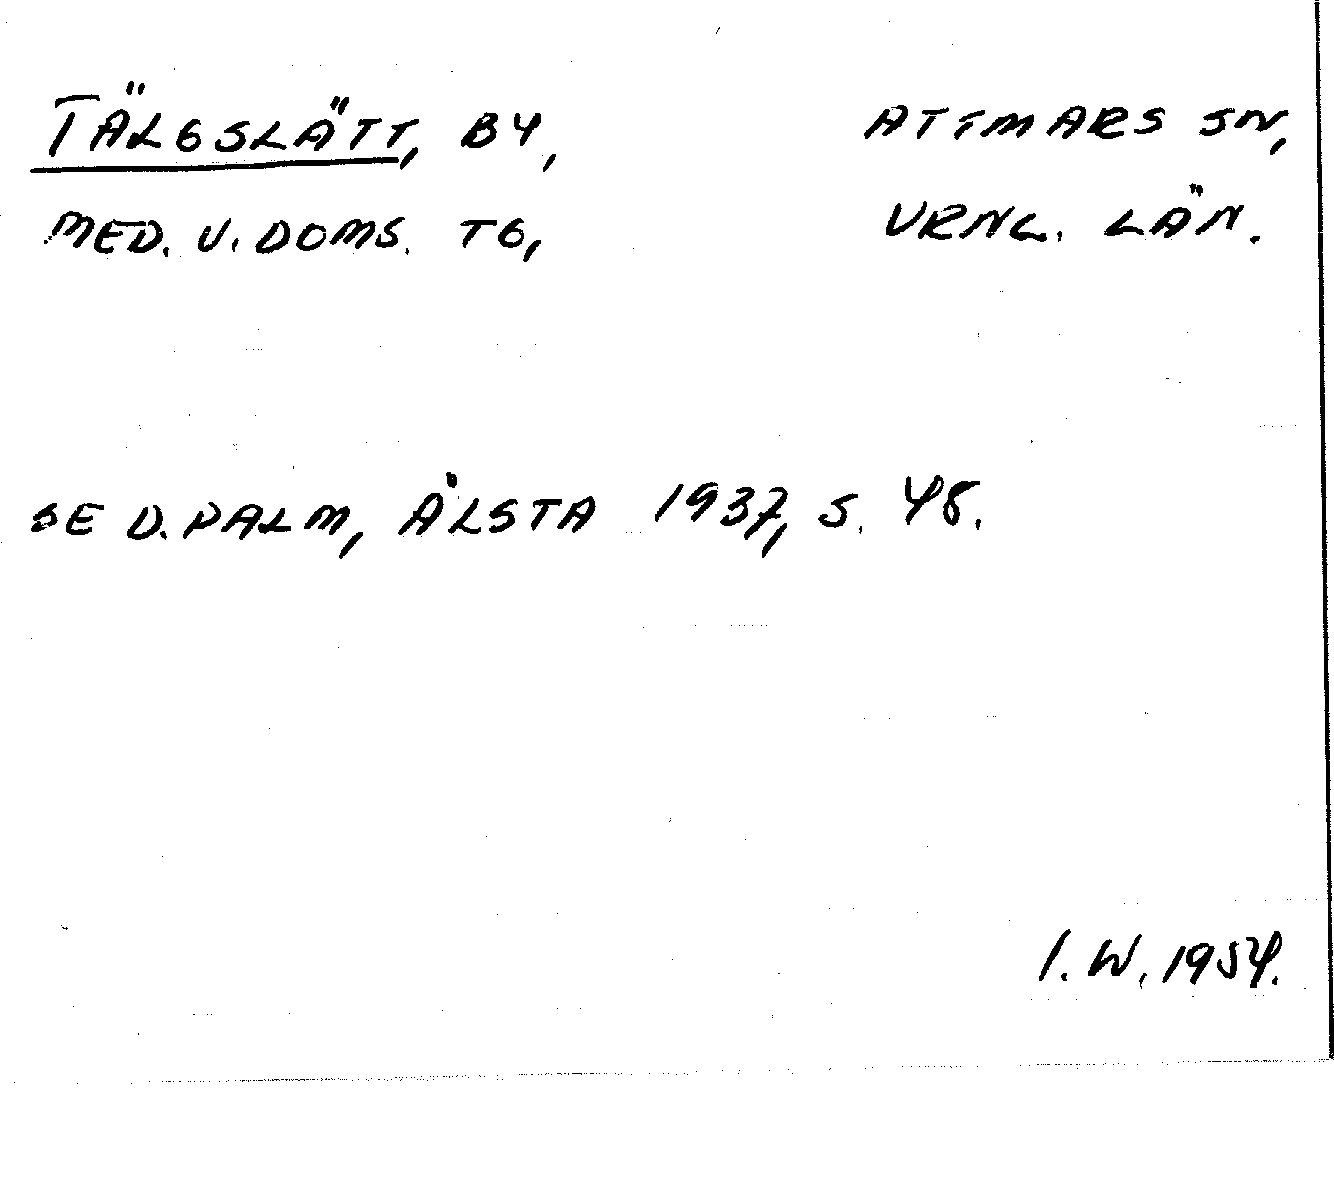 TÄLGSLÄTT, BY, ATTMARS SN,
MED. V. DOMS. TG, VRNL. LÄN.
SE D. PALM, ÄLSTA 1937, S. 48.
I. W. 1954.